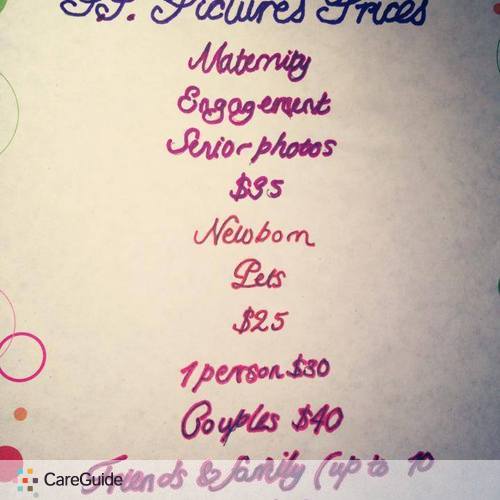 Pictures Prices
Maternity
Engagement
Senior photos
$35
Newborn
Pets
$25
1 person $30
Couples $40
Friends & family (up to 10
CareGuide